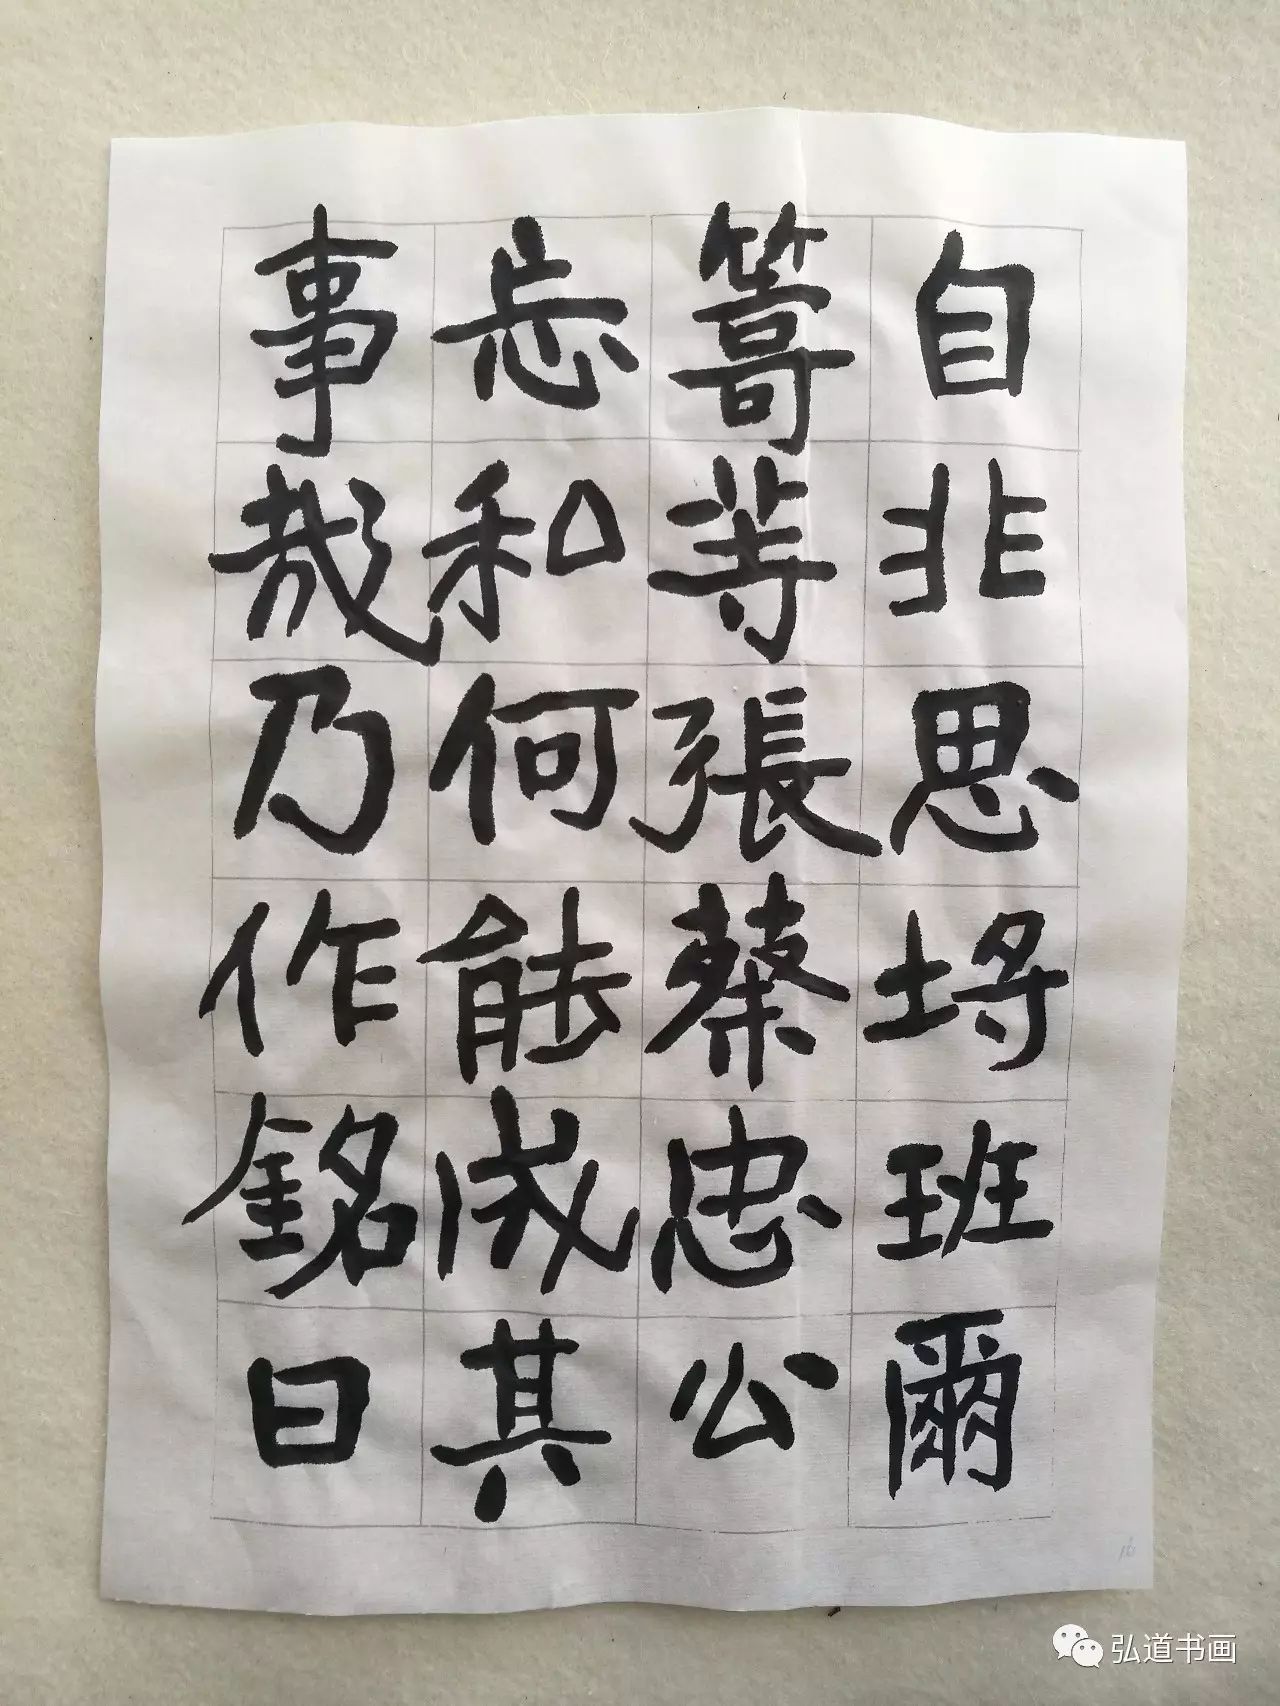 自非思埒班爾
籌等張蔡忠公
忘私何能成其
事哉乃作銘曰
弘道书画